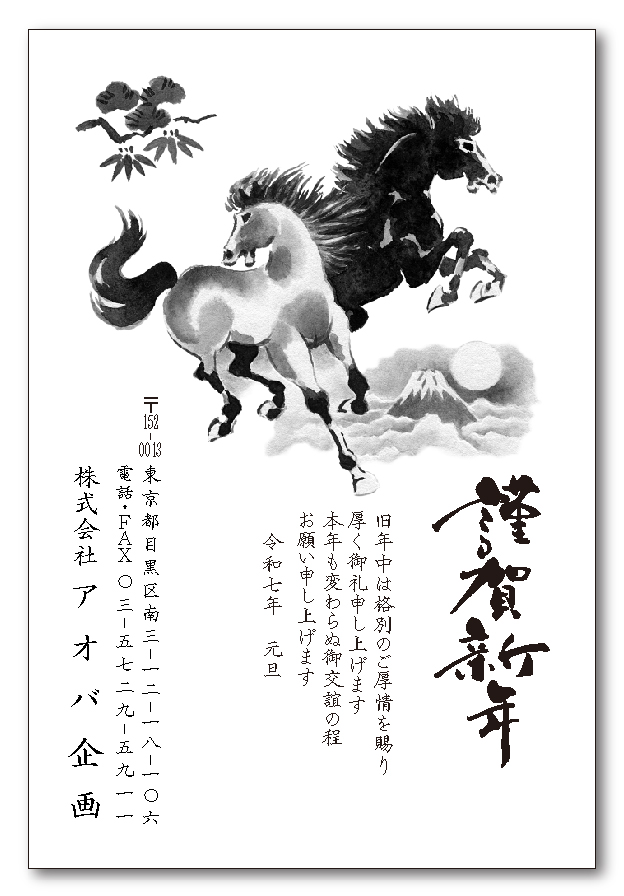 謹賀新年
旧年中は格別のご厚情を賜り
厚く御礼申し上げます
本年も変わらぬ御交誼の程
お願い申し上げます
令和七年　元旦
〒152-0013
東京都目黒区南三ー一二ー一八ー一〇六
電話・FAX〇三ー五七二九ー五九一一
株式会社アオバ企画